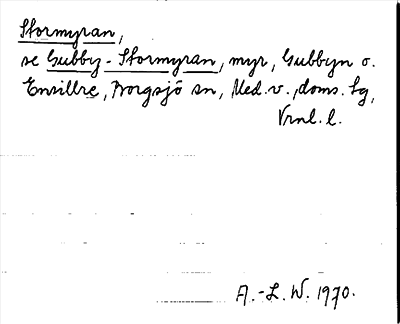 Stormyran,
se Gubby-Stormyran, myr, Gubbyn o.
Ensillre, Borgsjö sn, Med. v., doms. sg,
Vrnl. l.
A.-L. W. 1970.